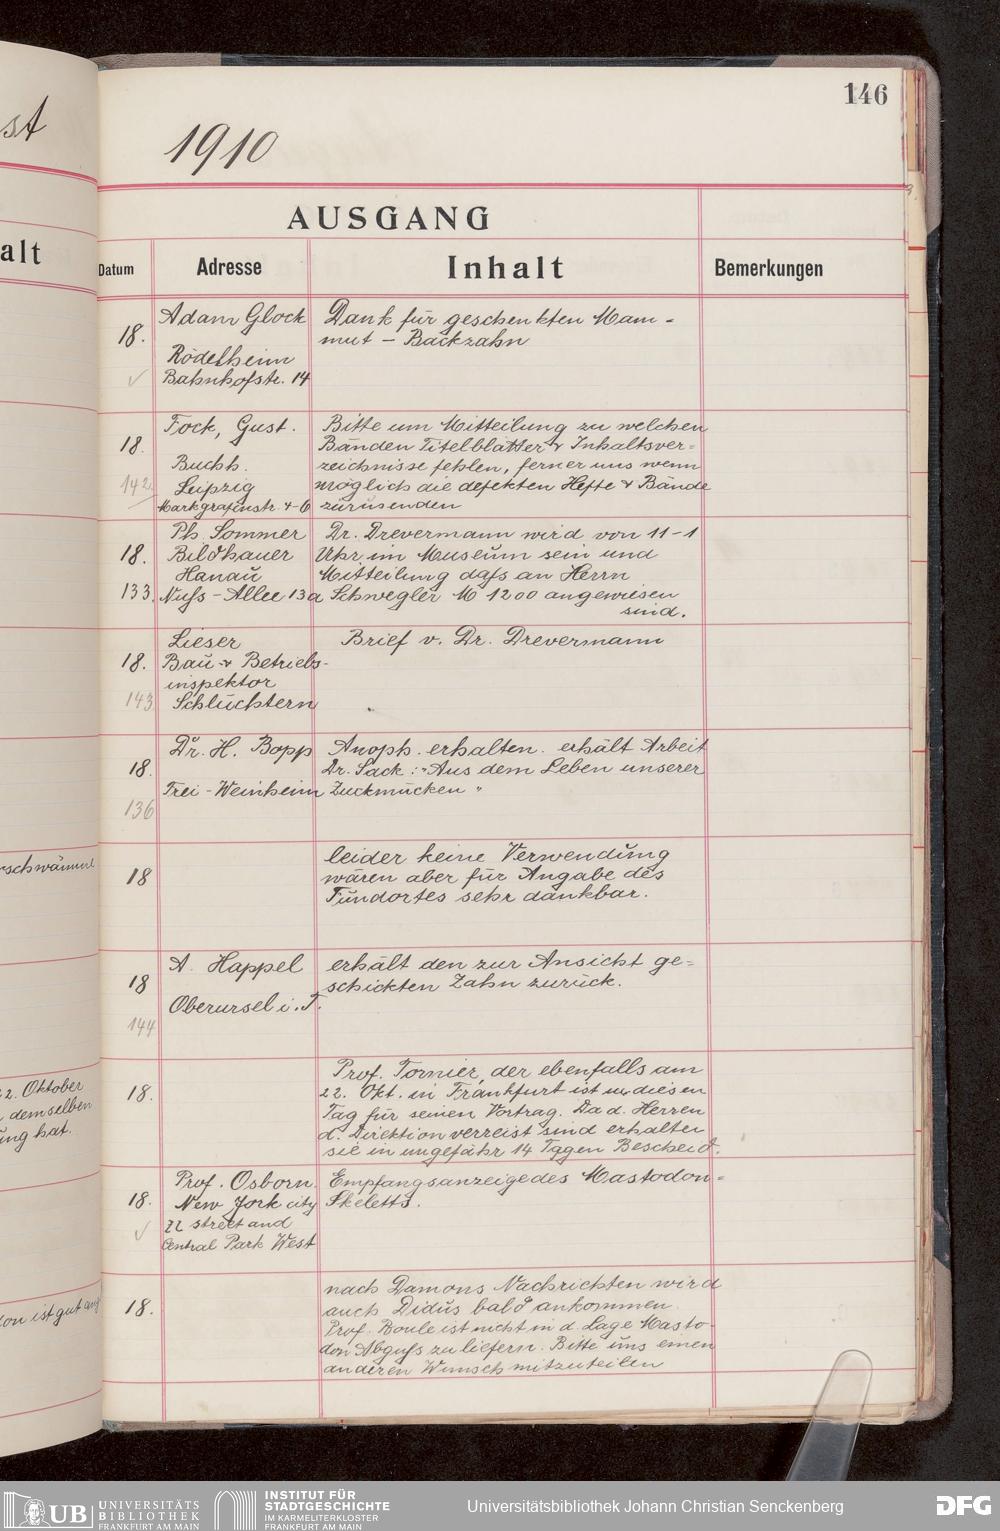 st
alt
schwämme
22. Oktober
demselben
ung hat.
ist gut ang
146
1910
AUSGANG
Datum Adresse Inhalt Bemerkungen
Adam Glock Dank für geschenkten Mam-
18. mut – Backzahn
Rödelheim
Bahnhofstr. 14
Fock, Gust. Bitte um Mitteilung zu welchen
18. Bänden Titelblätter & Inhaltsver-
Buchh. zeichnisse fehlen, ferner uns wenn
142 Leipzig möglich die defekten Hefte & Bände
Markgrafenstr. 4-6 zurusenden
Ph. Sommer Dr. Drevermann wird von 11-1
18. Bildhauer Uhr im Museum sein und
Hanau Mitteilung dass an Herrn
133. Nuss-Allee 13a Schwegler M 1200 angewiesen
sind.
Lieser Brief v. Dr. Drevermann
18. Bau- & Betriebs-
inspektor
143 Schlüchtern
Dr. H. Bopp Anoph. erhalten. erhält Arbeit
18. Dr. Sack: "Aus dem Leben unserer
Frei-Weinheim Zuckmücken"
136
leider keine Verwendung
18 wären aber für Angabe des
Fundortes sehr dankbar.
A. Happel erhält den zur Ansicht ge-
18 schickten Zahn zurück.
Oberursel i. T.
144
Prof. Tornier, der ebenfalls am
18. 22. Okt. in Frankfurt ist um diesen
Tag für seinen Vortrag. Da d. Herren
d. Direktion verreist sind erhalten
sie in ungefähr 14 Tagen Bescheid.
Prof. Osborn Empfangsanzeige des Mastodon-
18. New York city Skeletts.
77 street and
Central Park West
nach Damons Nachrichten wird
18. auch Didus bald ankommen.
Prof. Boule ist nicht in d. Lage Masto-
don Abguss zu liefern. Bitte uns einen
anderen Wunsch mitzuteilen
UB UNIVERSITÄTS
BIBLIOTHEK
FRANKFURT AM MAIN
INSTITUT FÜR
STADTGESCHICHTE
IM KARMELITERKLOSTER
FRANKFURT AM MAIN
Universitätsbibliothek Johann Christian Senckenberg
DFG